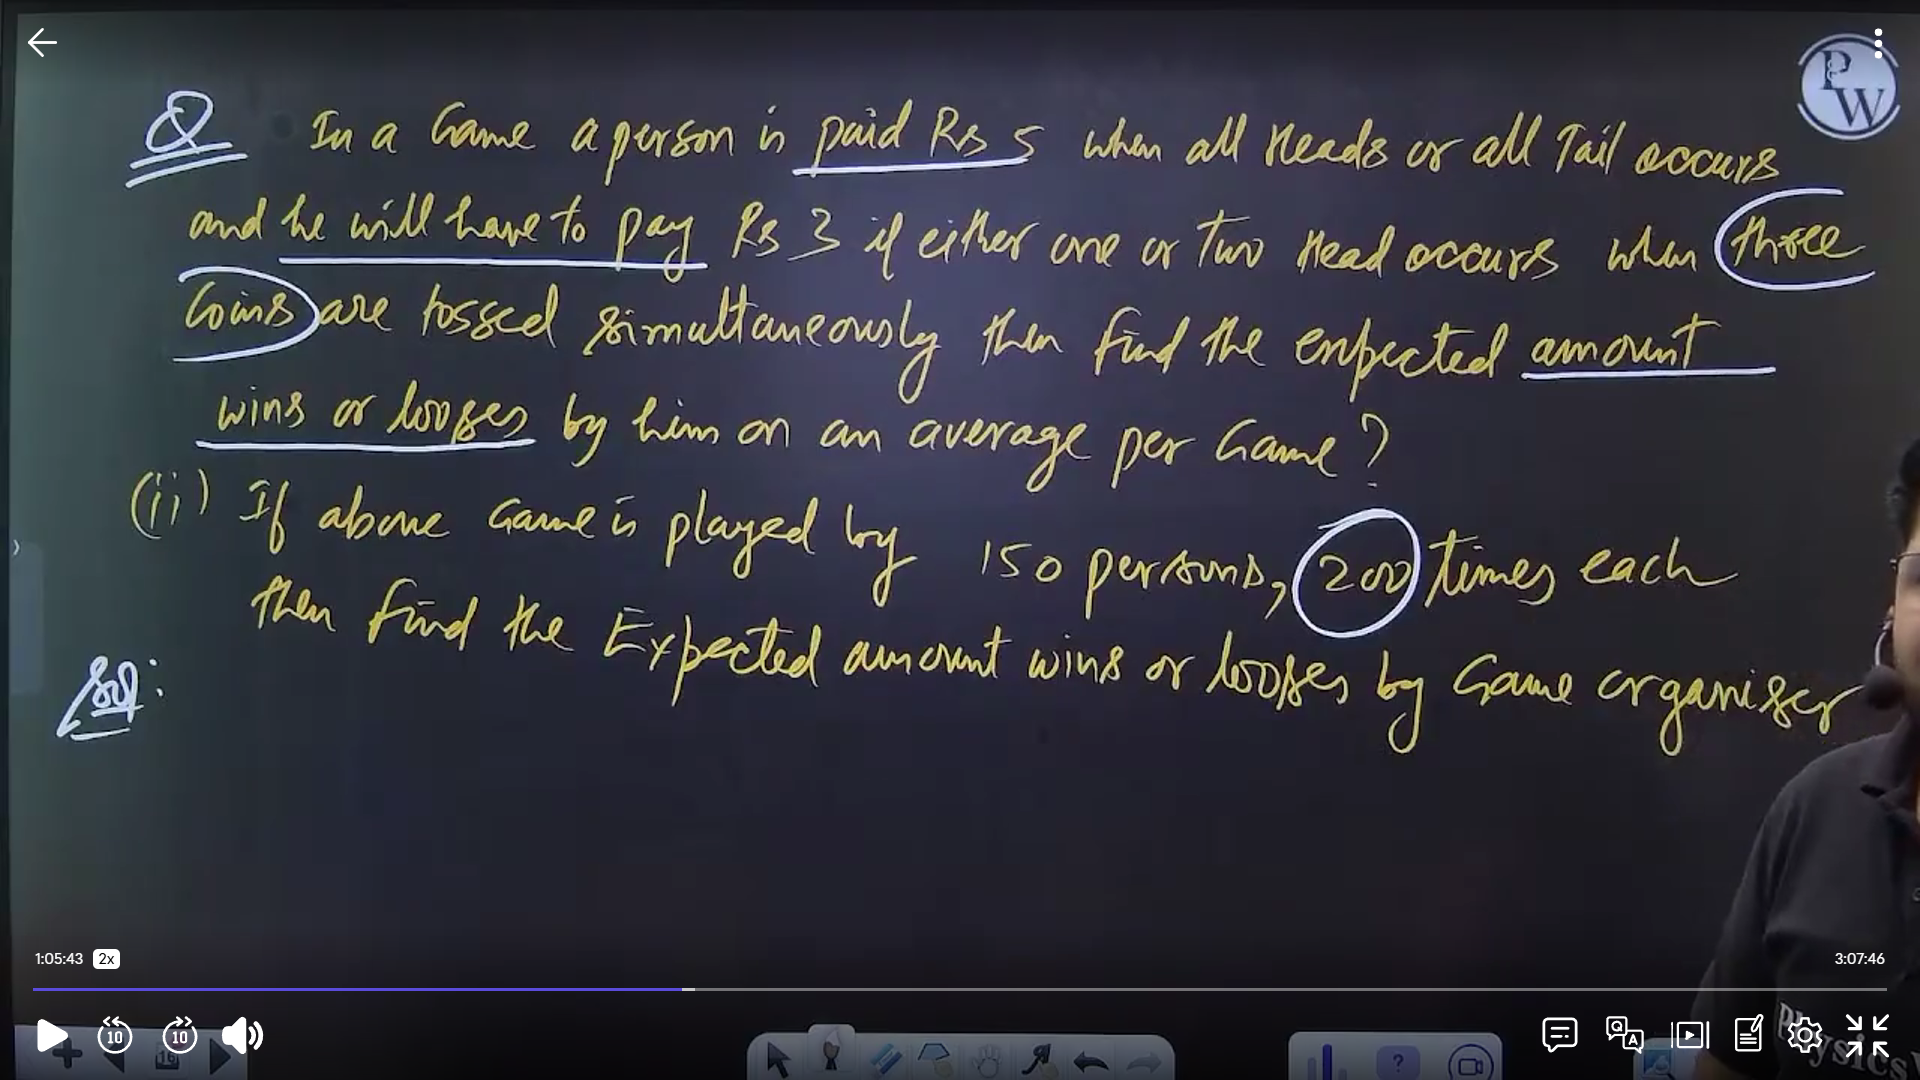 PW
Q In a Game a person is paid Rs 5 when all Heads or all Tail occurs
and he will have to pay Rs 3 if either one or two Head occurs when three
Coins are tossed simultaneously then find the expected amount
wins or looses by him on an average per Game?
(ii) If above Game is played by 150 persons, 200 times each
then find the Expected amount wins or looses by Game organiser
Sol:
1:05:43 2x 3:07:46
10 10
16
Physics